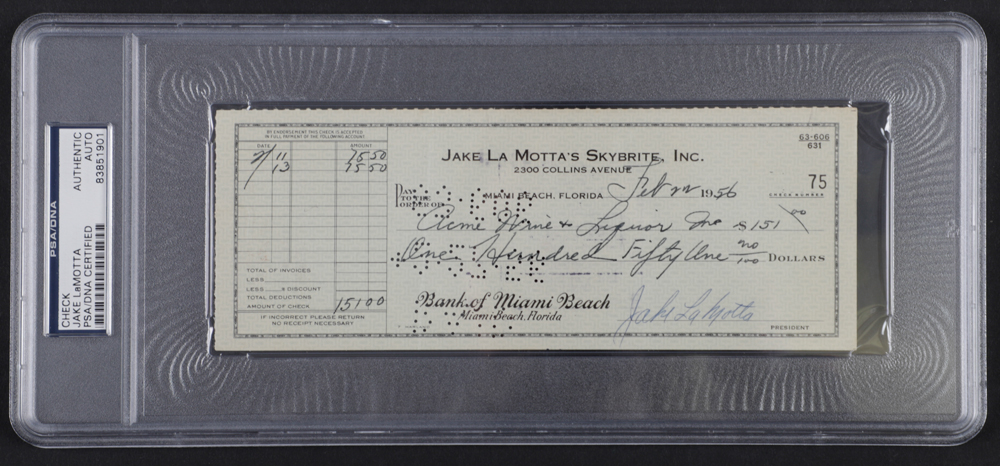 PSA/DNA
CHECK
JAKE LaMOTTA
PSA/DNA CERTIFIED
AUTHENTIC
AUTO
83851901
BY ENDORSEMENT THIS CHECK IS ACCEPTED
IN FULL PAYMENT OF THE FOLLOWING ACCOUNT
DATE AMOUNT
2/11 75 50
13 75 50
TOTAL OF INVOICES
LESS % DISCOUNT
LESS
TOTAL DEDUCTIONS
AMOUNT OF CHECK 151 00
IF INCORRECT PLEASE RETURN
NO RECEIPT NECESSARY
63-606
631
JAKE LA MOTTA'S SKYBRITE, INC.
2300 COLLINS AVENUE
MIAMI BEACH, FLORIDA Feb 22 1956
75
CHECK NUMBER
PAY
TO THE
ORDER OF
Acme Wine & Liquor Inc $ 151 00
One Hundred Fifty One no/100 DOLLARS
Bank of Miami Beach
Miami Beach, Florida
Jake LaMotta
PRESIDENT